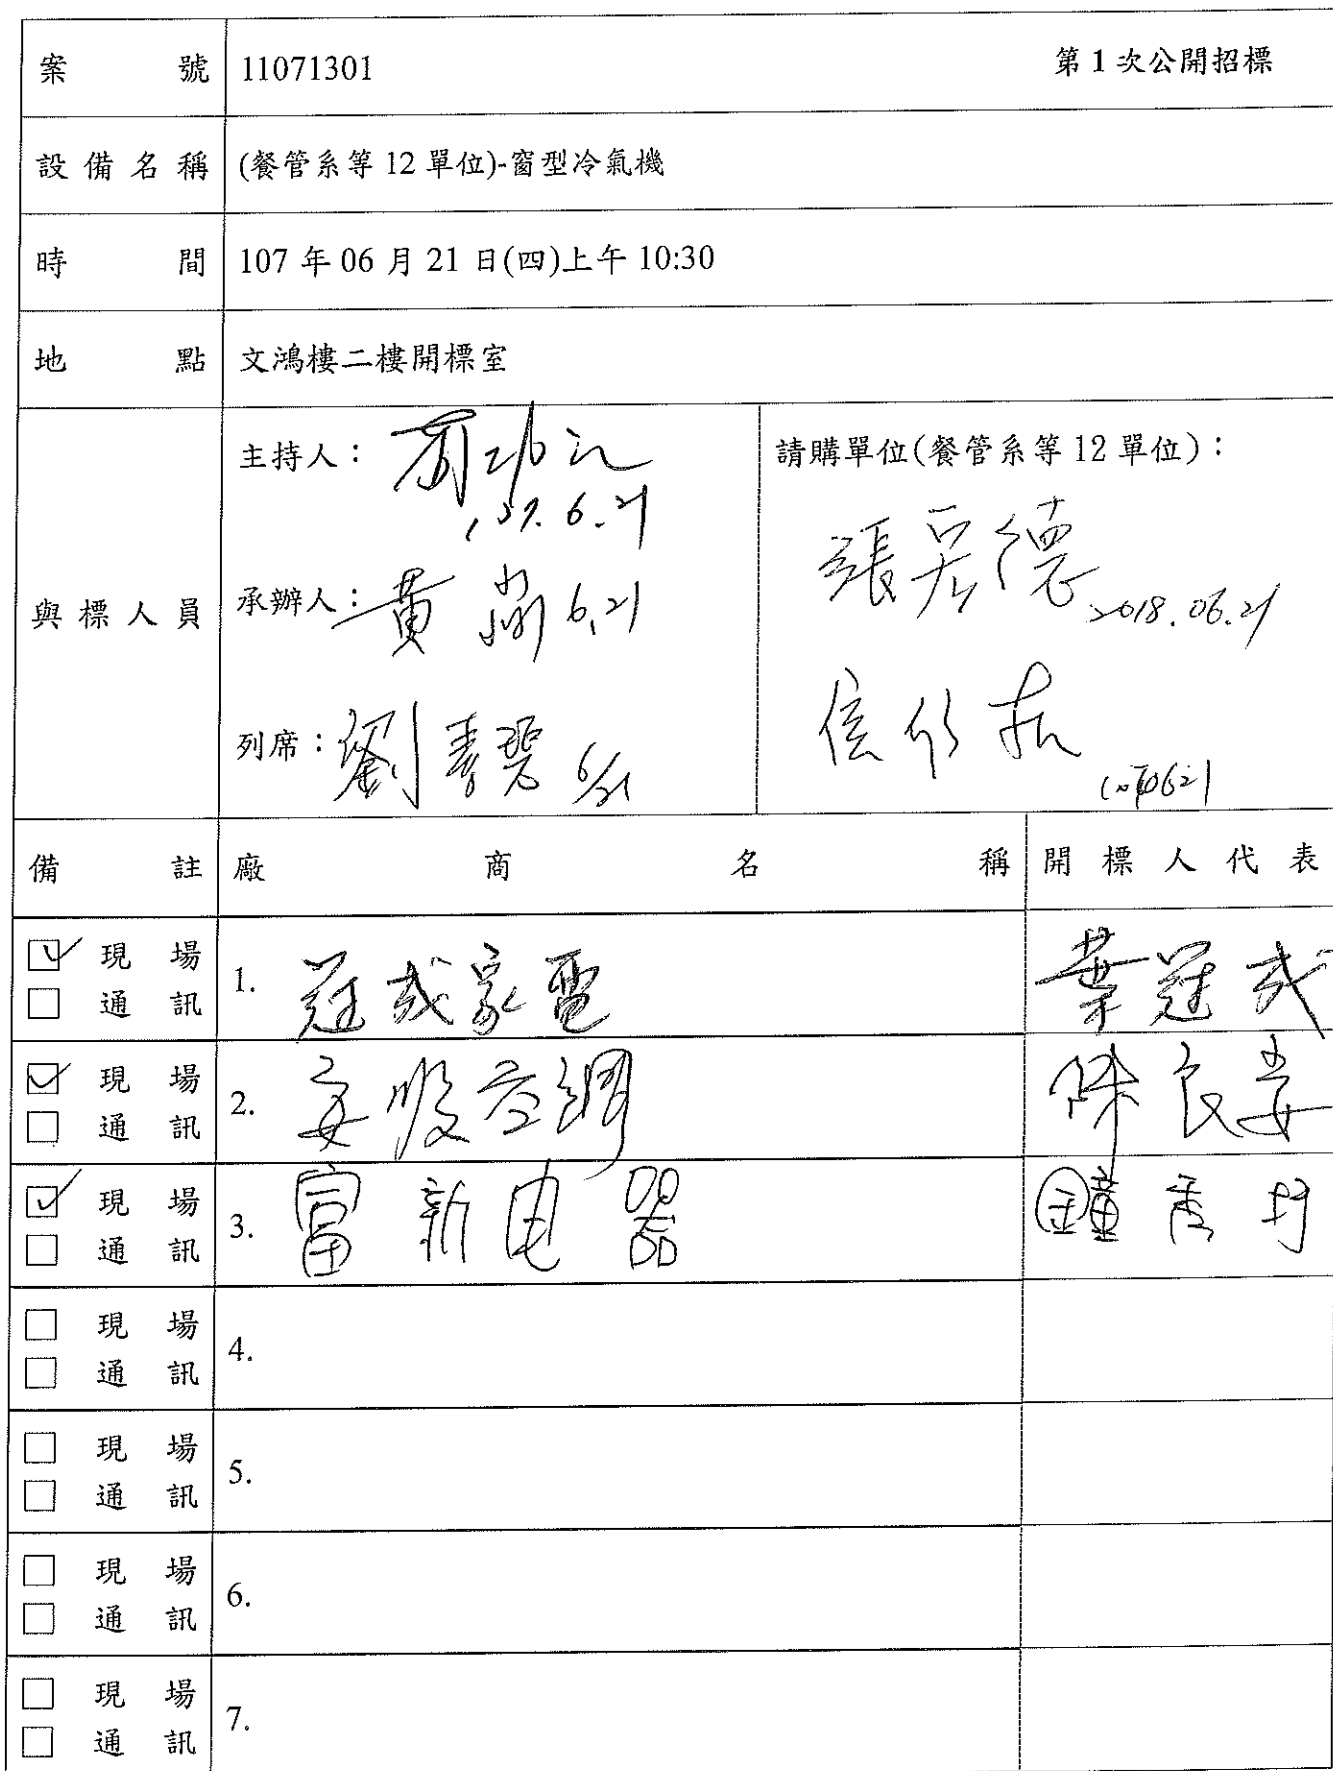 案號 11071301 第1次公開招標
設備名稱 (餐管系等 12 單位)-窗型冷氣機
時間 107 年 06 月 21 日(四)上午 10:30
地點 文鴻樓二樓開標室
與標人員
主持人：
107.6.21
承辦人：黃 6.21
列席：劉 6/21
請購單位(餐管系等 12 單位)：
張 德 2018.06.21
備註 廠商名稱 開標人代表
☑ 現場 1. 冠成家電 葉冠成
☐ 通訊
☑ 現場 2. 安順空調
☐ 通訊
☑ 現場 3. 富新电器 鐘
☐ 通訊
☐ 現場 4.
☐ 通訊
☐ 現場 5.
☐ 通訊
☐ 現場 6.
☐ 通訊
☐ 現場 7.
☐ 通訊